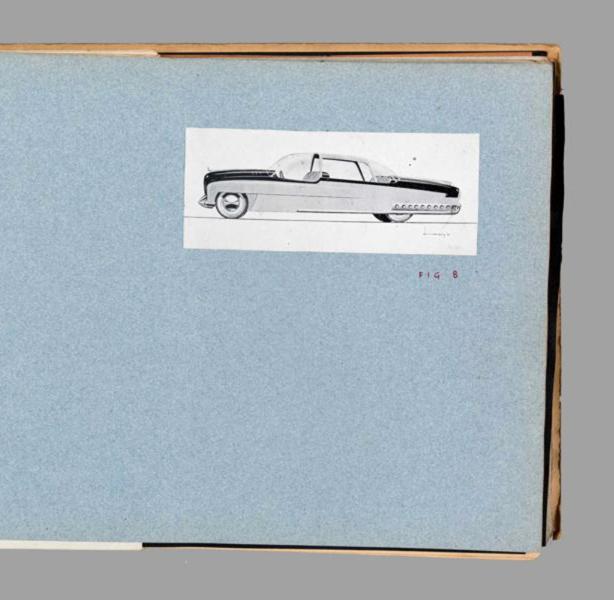 FIG 8